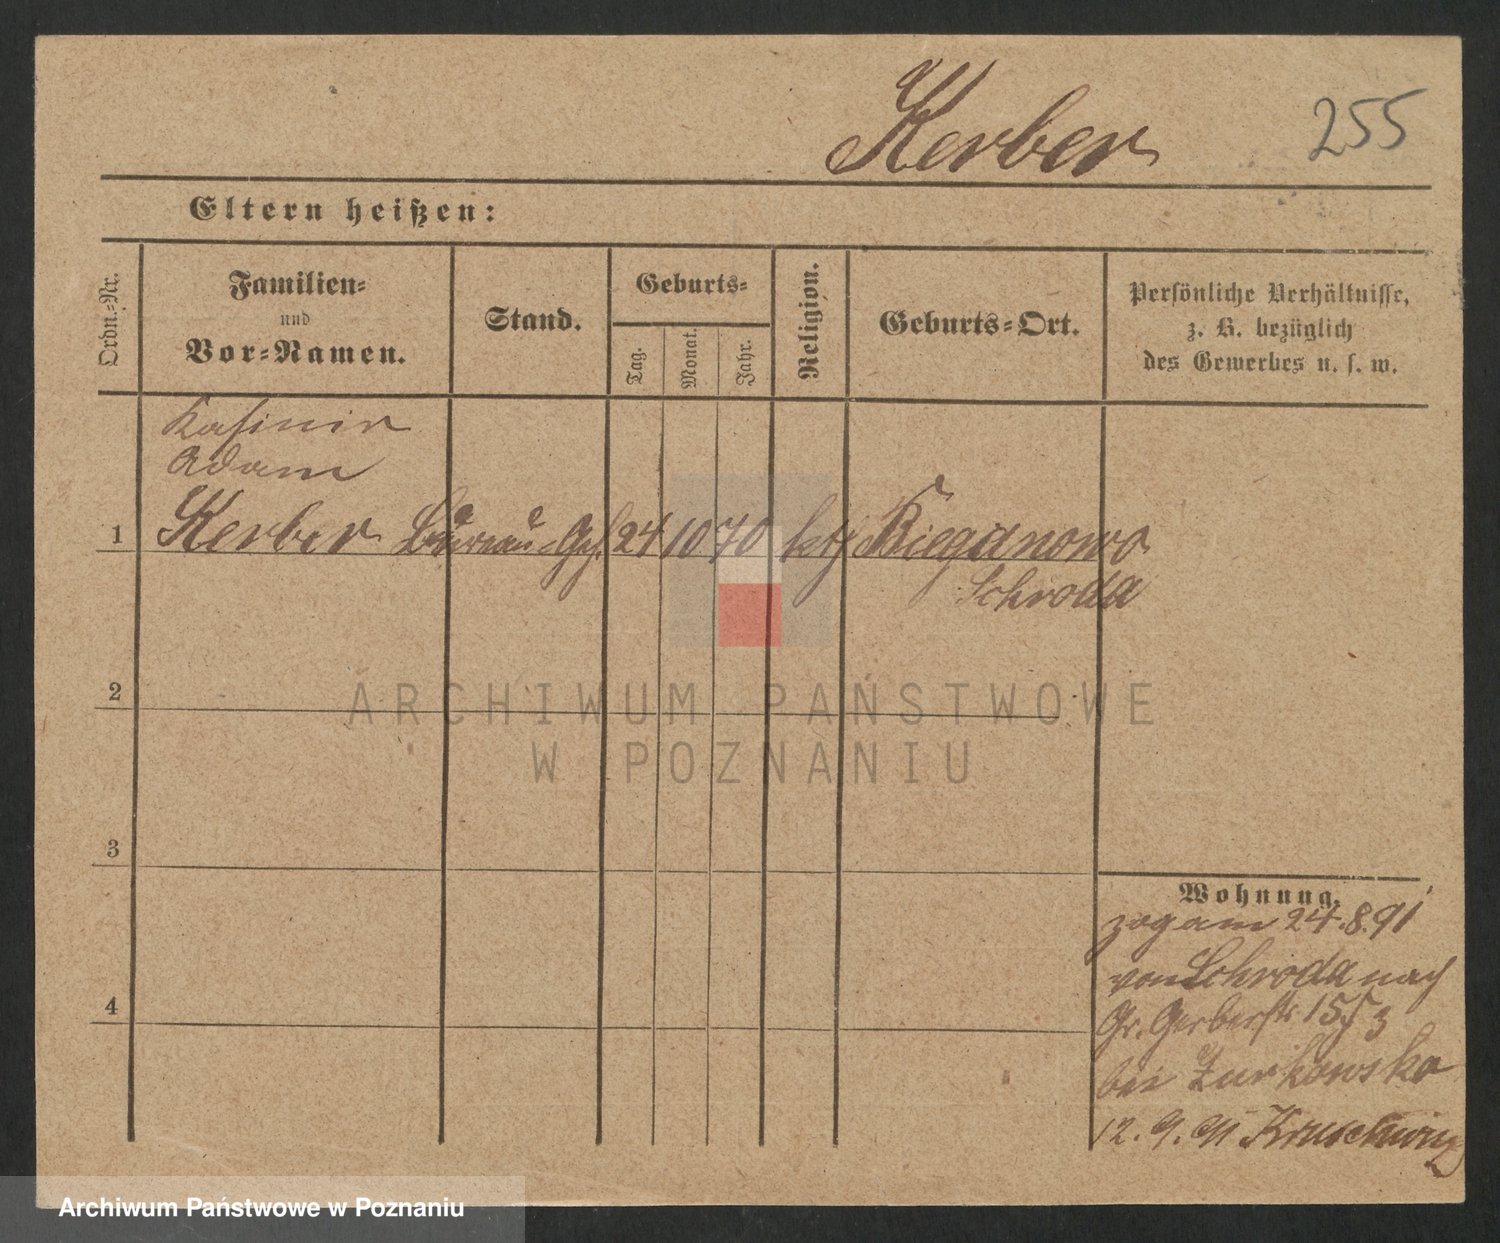 Kerber
255
Eltern heißen:
Ordn.-Nr.
Familien-
und
Vor-Namen.
Stand.
Geburts-
Tag.
Monat.
Jahr.
Religion.
Geburts-Ort.
Persönliche Verhältnisse,
z. B. bezüglich
des Gewerbes u. s. w.
Kasimir
Adam
1 Kerber Bureau-Geh. 24 10 70 kth Bieganowo
Schroda
2
ARCHIWUM PAŃSTWOWE
W POZNANIU
3
Wohnung.
zog am 24.8.91
von Schroda nach
4
Gr. Gerberstr 15
bei Zurkowska
12.9.91 Kruschwitz
Archiwum Państwowe w Poznaniu